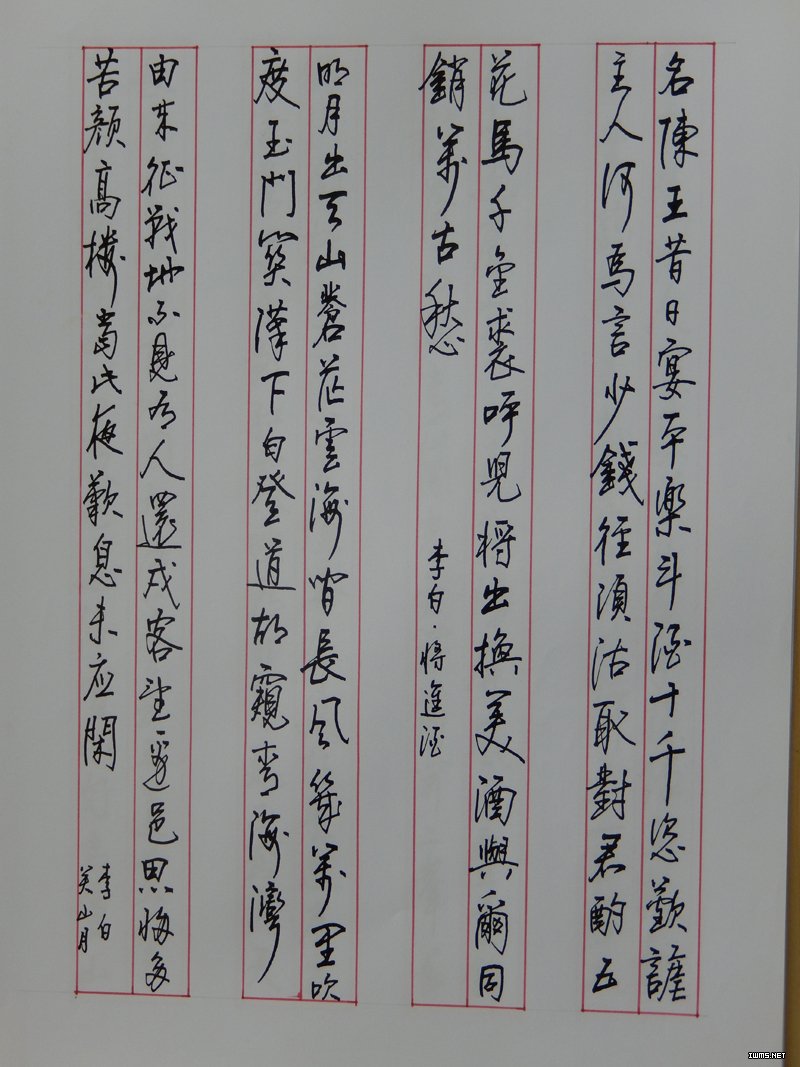 名陳王昔日宴平樂斗酒十千恣歡謔
主人何為言少錢徑須沽取對君酌五
花馬千金裘呼兒將出換美酒與爾同
銷萬古愁 李白·將進酒
明月出天山蒼茫雲海間長風幾萬里吹
度玉門關漢下白登道胡窺青海灣
由来征戰地不見有人還戍客望邊邑思歸多
苦顔高樓當此夜歎息未应閑
李白
关山月
IWMS.NET